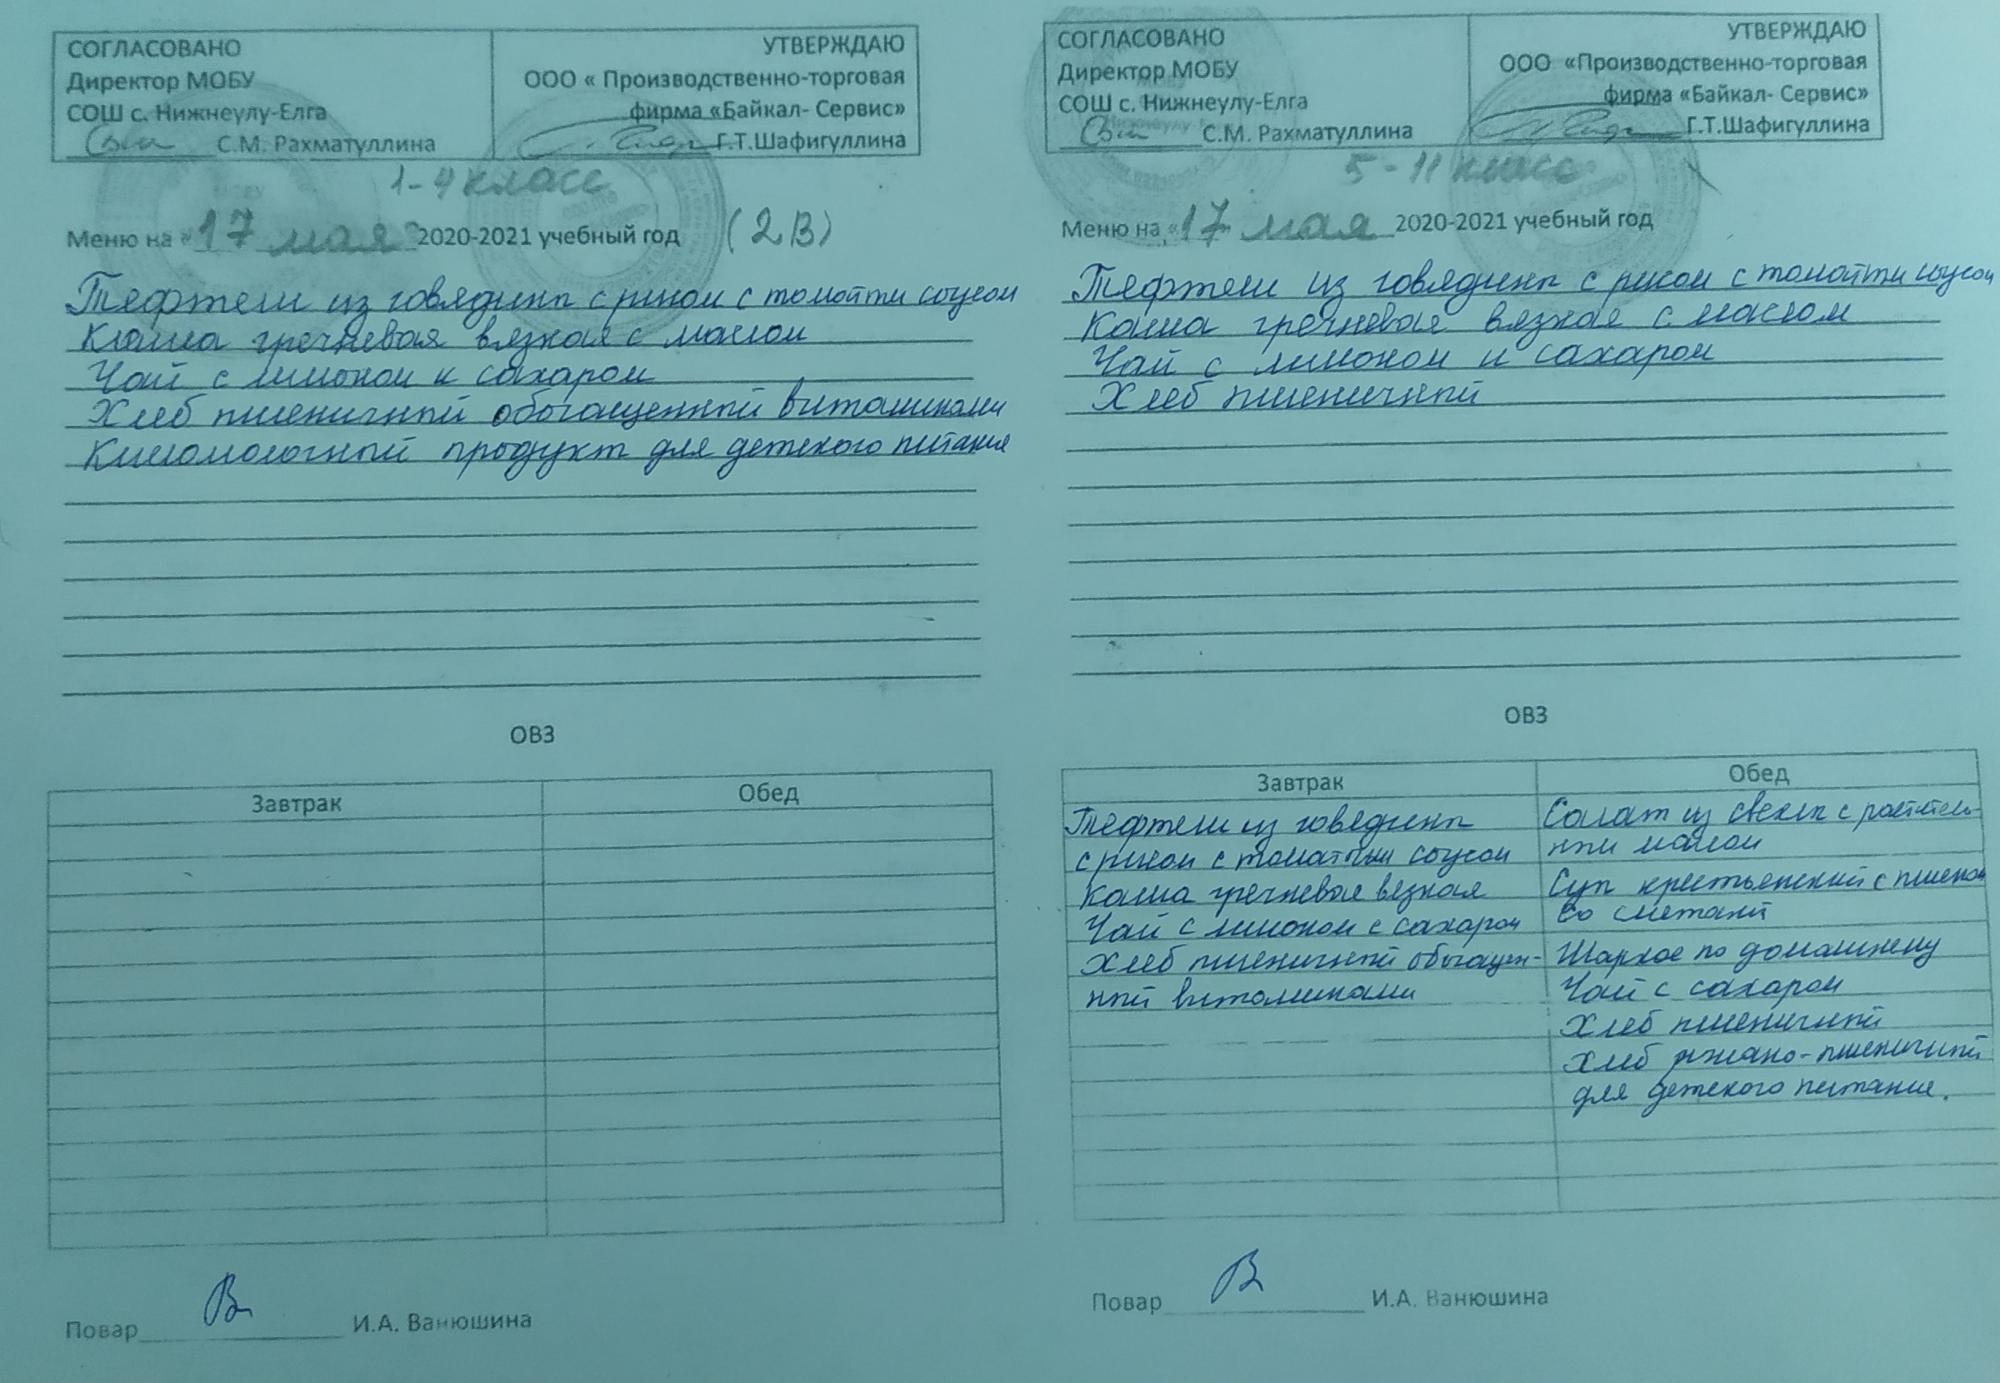 СОГЛАСОВАНО
Директор МОБУ
СОШ с. Нижнеулу-Елга
С.М. Рахматуллина
УТВЕРЖДАЮ
ООО « Производственно-торговая
фирма «Байкал- Сервис»
Г.Т.Шафигуллина
1-4 класс
Меню на «17 мая 2020-2021 учебный год (2В)
Тефтели из говядины с рисом с томатным соусом
Каша гречневая вязкая с маслом
Чай с лимоном и сахаром
Хлеб пшеничный обогащенный витаминами
Кисломолочный продукт для детского питания
ОВЗ
Завтрак Обед
Повар И.А. Ванюшина
СОГЛАСОВАНО
Директор МОБУ
СОШ с. Нижнеулу-Елга
С.М. Рахматуллина
УТВЕРЖДАЮ
ООО «Производственно-торговая
фирма «Байкал- Сервис»
Г.Т.Шафигуллина
5-11 класс
Меню на «17» мая 2020-2021 учебный год
Тефтели из говядины с рисом с томатным соусом
Каша гречневая вязкая с маслом
Чай с лимоном и сахаром
Хлеб пшеничный
ОВЗ
Завтрак
Тефтели из говядины
с рисом с томатным соусом
Каша гречневая вязкая
Чай с лимоном с сахаром
Хлеб пшеничный обогащен-
ный витаминами
Обед
Салат из свеклы с раститель-
ным маслом
Суп крестьянский с пшеном
со сметаной
Жаркое по домашнему
Чай с сахаром
Хлеб пшеничный
Хлеб ржано-пшеничный
для детского питания.
Повар И.А. Ванюшина